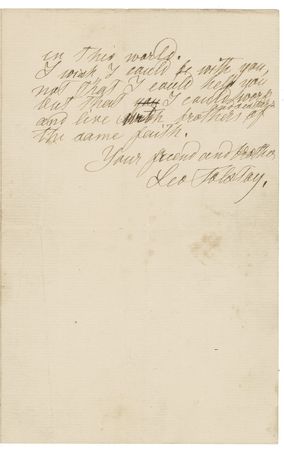 in this world.
I wish I could be with you,
not that I could help you
but that I could work
and live with brothers of
the same faith.
Your friend and brother
Leo Tolstoy.